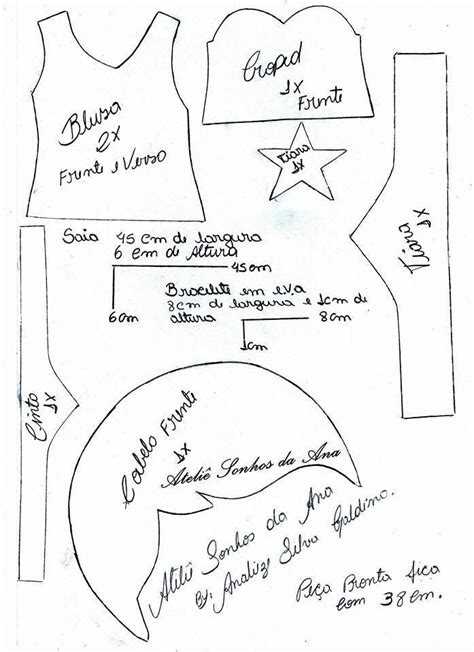 Blusa
2x
Frente e Verso
Croped
1x
Frente
Tiara
1x
Tiara
1x
Saia 45 cm de largura
6 cm de Altura
45cm
6cm
Bracelete em e.v.a
8cm de largura e 1cm de
altura
8cm
1cm
Cinto
1x
Cabelo Frente
1x
Ateliê Sonhos da Ana
Ateliê Sonhos da Ana
By: Analizy Silva Galdino.
Peça Pronta fica
com 38cm.